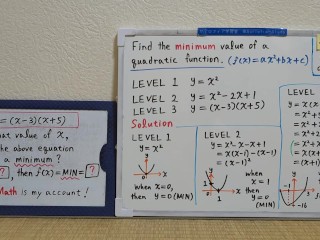 = (x-3)(x+5)
at value of x,
he above equation
a minimum ?
?, then f(x)=MIN= ?
Math is my account !
Find the minimum value of a
quadratic function. (f(x)=ax²+bx+c)
LEVEL 1 y = x²
LEVEL 2 y = x²-2x+1
LEVEL 3 y = (x-3)(x+5)
Solution
LEVEL 1
y = x²
y
0
x
when
x=0,
then y=0 (MIN)
LEVEL 2
y = x²-x-x+1
= x(x-1)-(x-1)
= (x-1)²
y
1
0
1
x
when
x = 1
then
y=0
(MIN)
LEVE
y = (x
= x²+
= x²
= (x²+
= (x+
= (x+
-1
-16